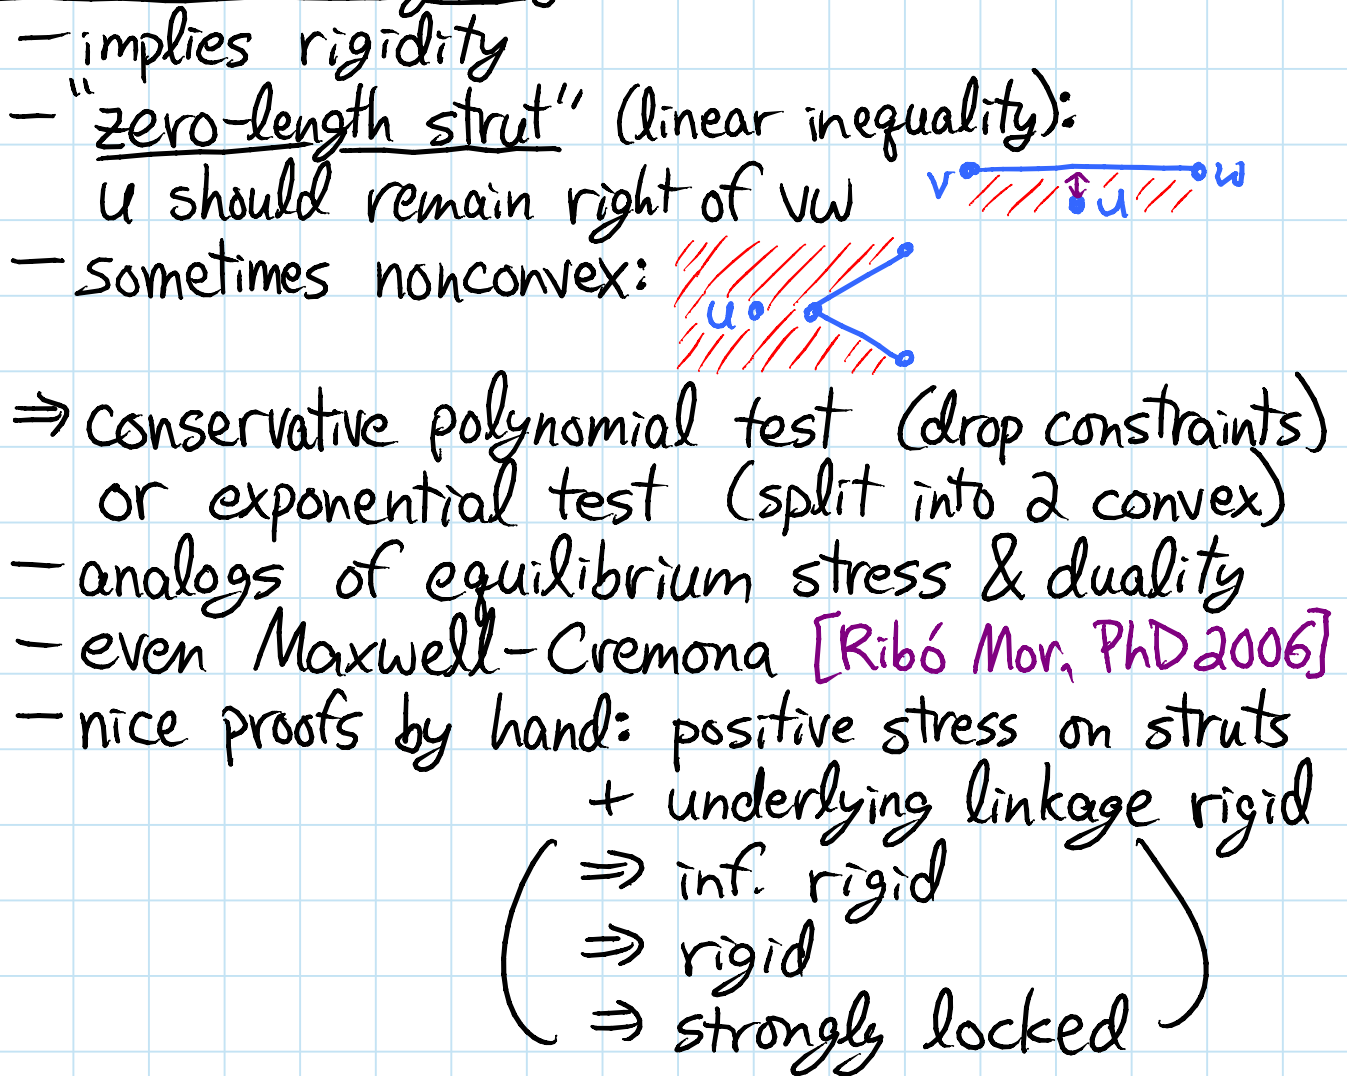 – implies rigidity
– "zero-length strut" (linear inequality):
u should remain right of vw
v w
u
– sometimes nonconvex:
u
⇒ conservative polynomial test (drop constraints)
or exponential test (split into 2 convex)
– analogs of equilibrium stress & duality
– even Maxwell-Cremona [Ribó Mor, PhD 2006]
– nice proofs by hand: positive stress on struts
+ underlying linkage rigid
(⇒ inf. rigid
⇒ rigid
⇒ strongly locked)